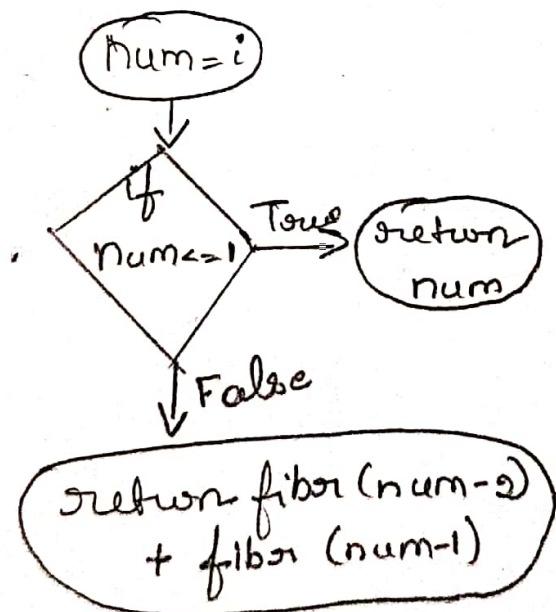 num=i
if
num<=1
True
return
num
False
return fibr(num-2)
+ fibr (num-1)